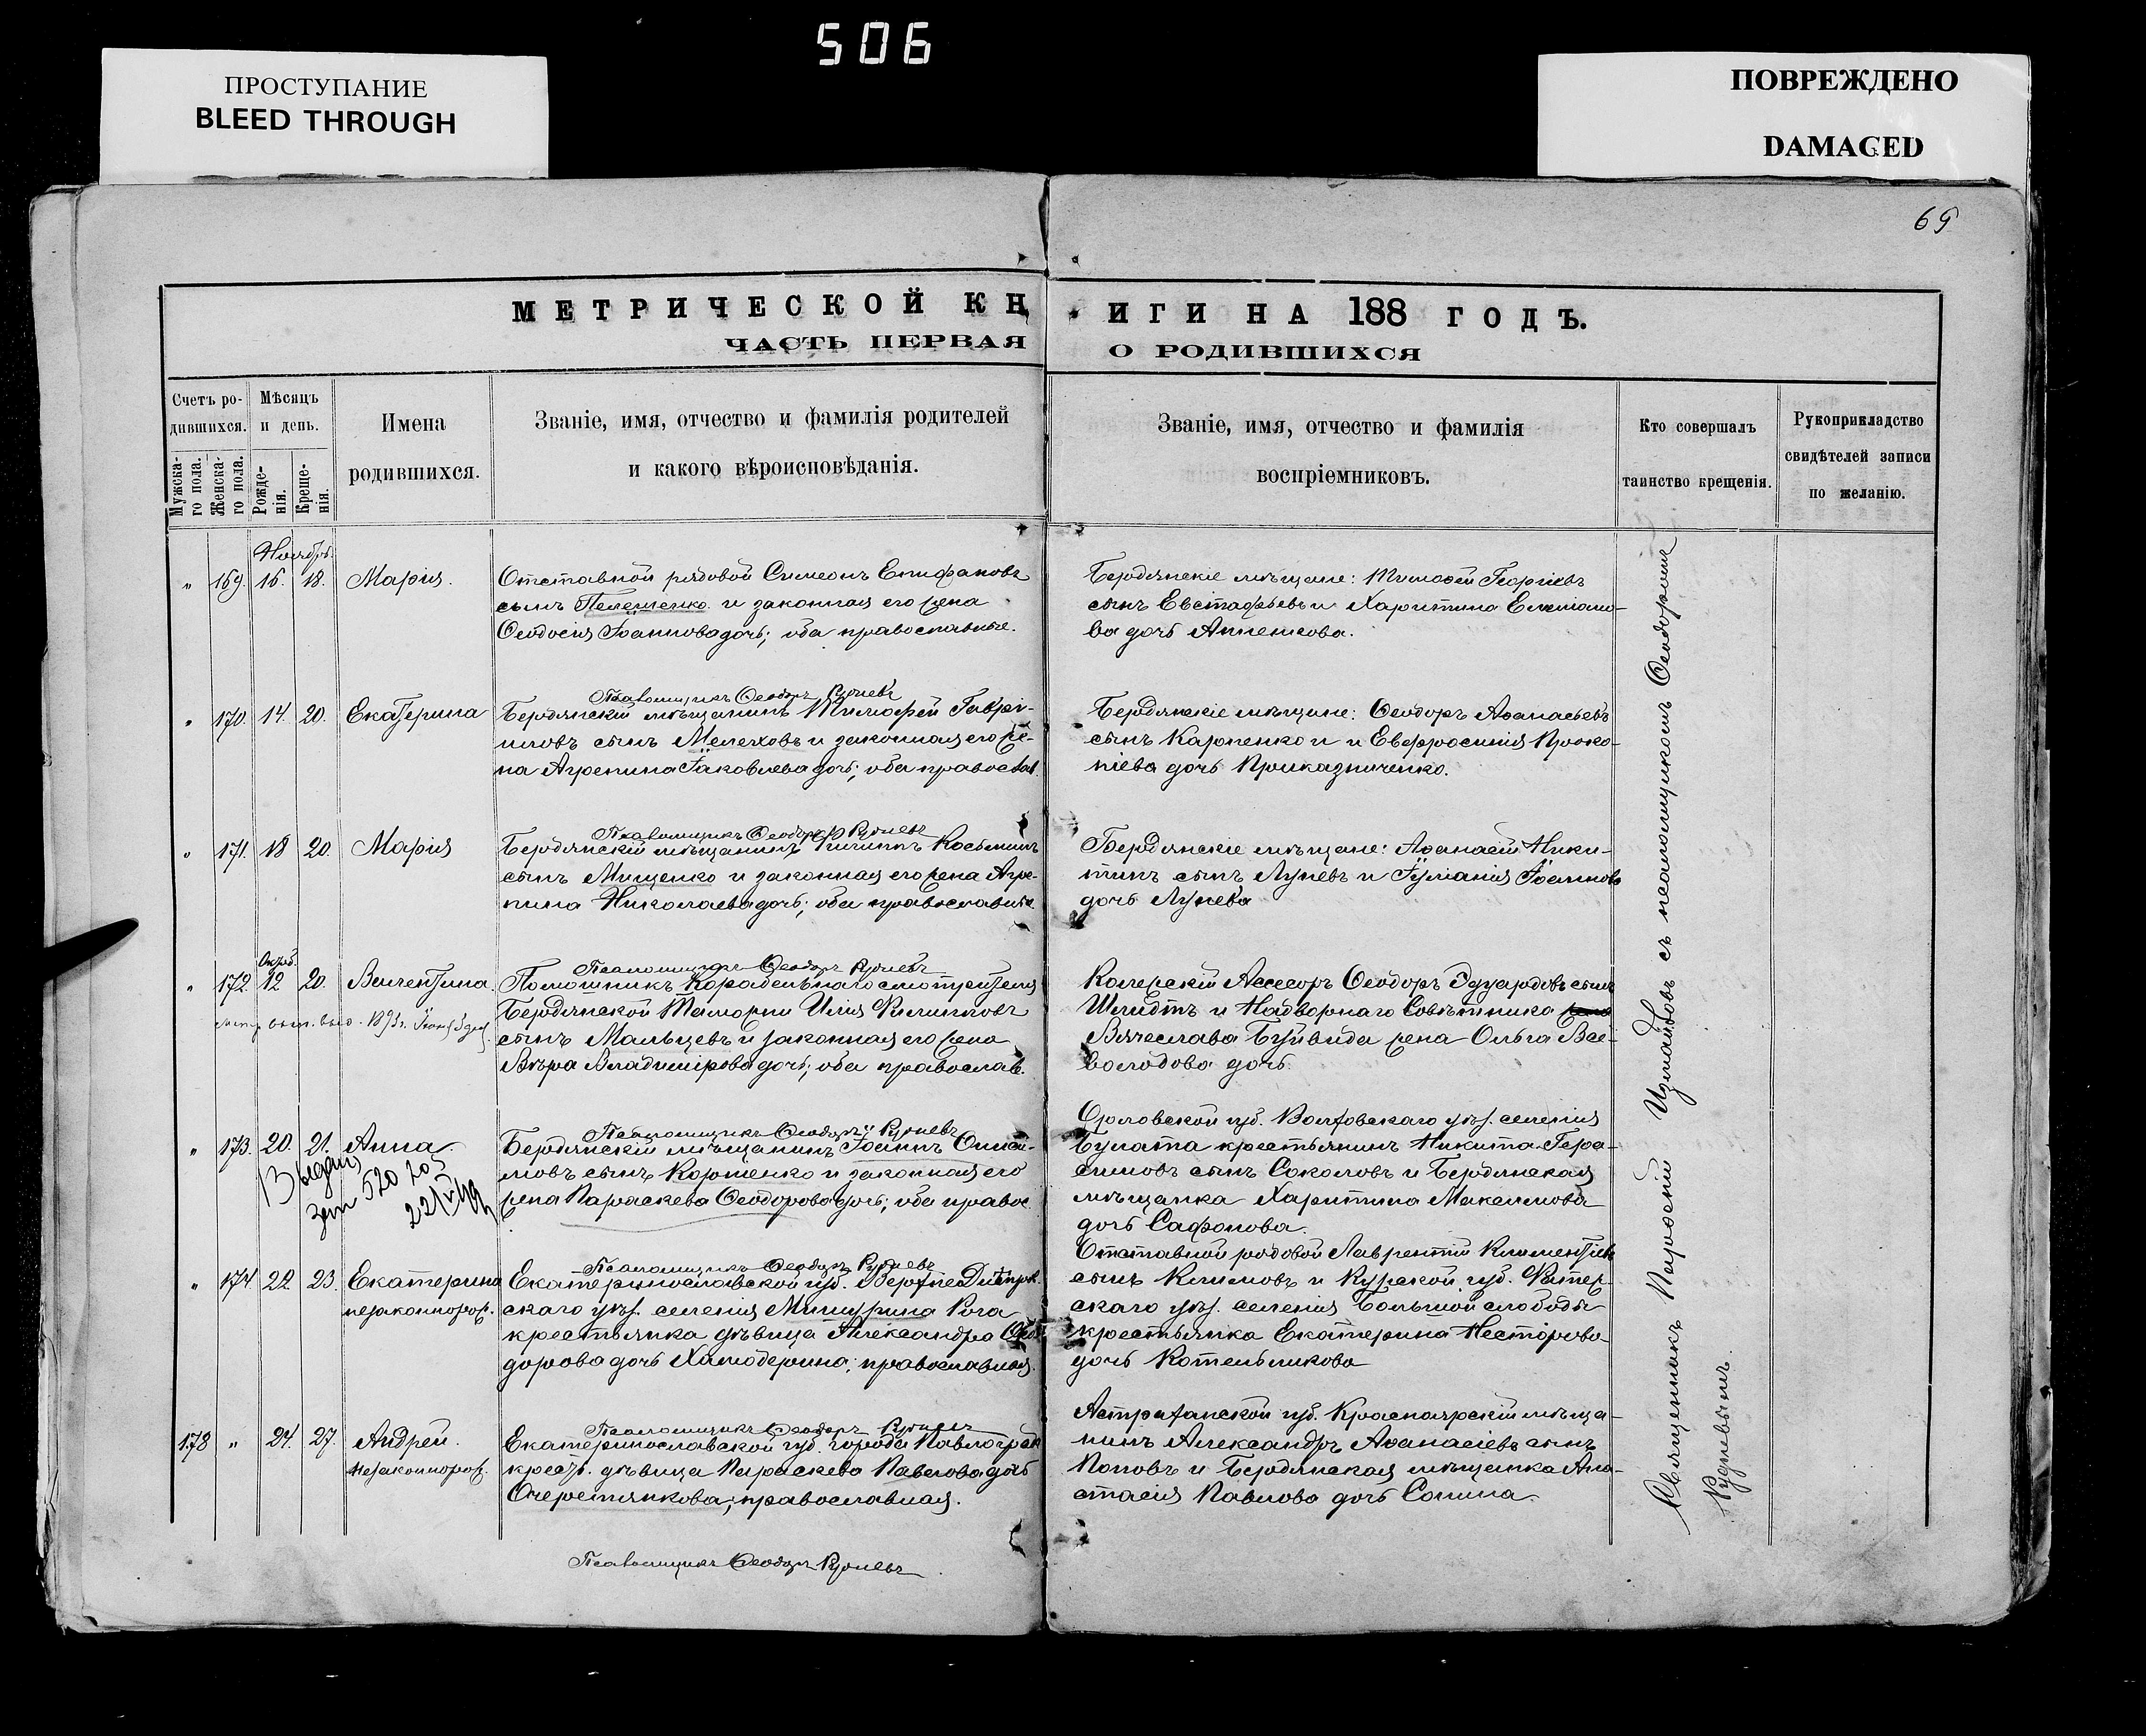 506
ПРОСТУПАНИЕ
BLEED THROUGH
ПОВРЕЖДЕНО
DAMAGED
69
МЕТРИЧЕСКОЙ КНИГИ НА 188 ГОДЪ.
ЧАСТЬ ПЕРВАЯ О РОДИВШИХСЯ
Счетъ ро-
дившихся.
Мужска-
го пола.
Женска-
го пола.
Мѣсяцъ
и день.
Рожде-
нія.
Креще-
нія.
Имена
родившихся.
Званіе, имя, отчество и фамилія родителей
и какого вѣроисповѣданія.
Званіе, имя, отчество и фамилія
воспріемниковъ.
Кто совершалъ
таинство крещенія.
Рукоприкладство
свидѣтелей записи
по желанію.
Ноябрь.
" 169. 16. 18. Марія.
Отставной рядовой Симеонъ Епифановъ
сынъ Пелешенко и законная его жена
Ѳеодосія Іоаннова дочь; оба православные.
Бердянскіе мѣщане: Тимоѳей Георгіевъ
сынъ Евстафьевъ и Харитина Емиліано-
ва дочь
Псаломщикъ Ѳеодоръ Рудневъ
" 170. 14. 20. Екатерина
Бердянскій мѣщанинъ Тимофей Гаврі-
иловъ сынъ Мелеховъ и законная его же-
на Агрепина Іаковлева дочь; оба православ.
Бердянскіе мѣщане: Ѳеодоръ Аѳанасьевъ
сынъ Карпенко и и Евфросинія Проко-
піева дочь Приказниченко.
Псаломщикъ Ѳеодоръ Рудневъ
" 171. 18 20. Марія
Бердянскій мѣщанинъ Филиппъ Косьминъ
сынъ Мищенко и законная его жена Агре-
пина Николаева дочь; оба православные
Бердянскіе мѣщане: Аѳанасій Ники-
тинъ сынъ Луневъ и Іуліанія Іоаннова
дочь Лунева
Псаломщикъ Ѳеодоръ Рудневъ
Октяб.
" 172. 12 20. Валентина.
Помошникъ Корабельнаго смотрителя
Бердянской Таможни Илія Филипповъ
сынъ Мальцевъ и законная его жена
Вѣра Владимірова дочь; оба православ.
Колежскій Ассесоръ Ѳеодоръ Эдуардовъ сынъ
Шмидтъ и Надворнаго Совѣтника
Вячеслава Буйвида жена Ольга Все-
володова дочь.
Псаломщикъ Ѳеодоръ Рудневъ
" 173. 20. 21. Анна.
Бердянскій мѣщанинъ Іоаннъ
сынъ Корженко и законная его
жена Параскева Ѳеодорова дочь; оба правос.
Орловской губ. Болховскаго уѣз. селенія
Булата крестьянинъ Никита Гера-
симовъ сынъ Соколовъ и Бердянская
мѣщанка Харитина Максимова
дочь Сафонова.
Псаломщикъ Ѳеодоръ Рудневъ
" 174 22. 23. Екатерина
незаконнорож.
Екатеринославской губ. Верхнеднѣпров-
скаго уѣз. селенія Мишурина Рога
крестьянка дѣвица Александра Ѳео-
дорова дочь Хамодерина; православная.
Отставной рядовой Лаврентій Климентіевъ
сынъ Климовъ и Курской губ. Фатеж-
скаго уѣз. селенія Большой слободы
крестьянка Екатерина Несторова
дочь Котельникова
Псаломщикъ Ѳеодоръ Рудневъ
178 " 24. 27. Андрей.
незаконнорож.
Екатеринославской губ. города Павлограда
крест. дѣвица Параскева Павлова дочь
Очеретянкова; православная.
Астраханской губ. Красноярскій мѣща-
нинъ Александръ Аѳанасіевъ сынъ
Поповъ и Бердянская мѣщанка Ана-
стасія Павлова дочь Сонина.
Псаломщикъ Ѳеодоръ Рудневъ
Священникъ Порфирій Измайловъ съ псаломщикомъ Ѳеодоромъ
Рудневымъ.